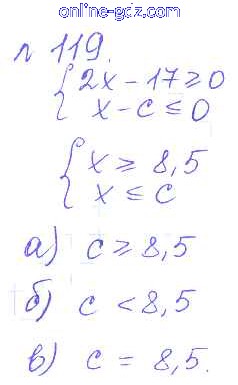 online-gdz.com
л 119.
{ 2x - 17 ≥ 0
x - c ≤ 0
{ x ≥ 8,5
x ≤ c
а) c ≥ 8,5
б) c < 8,5
в) c = 8,5.